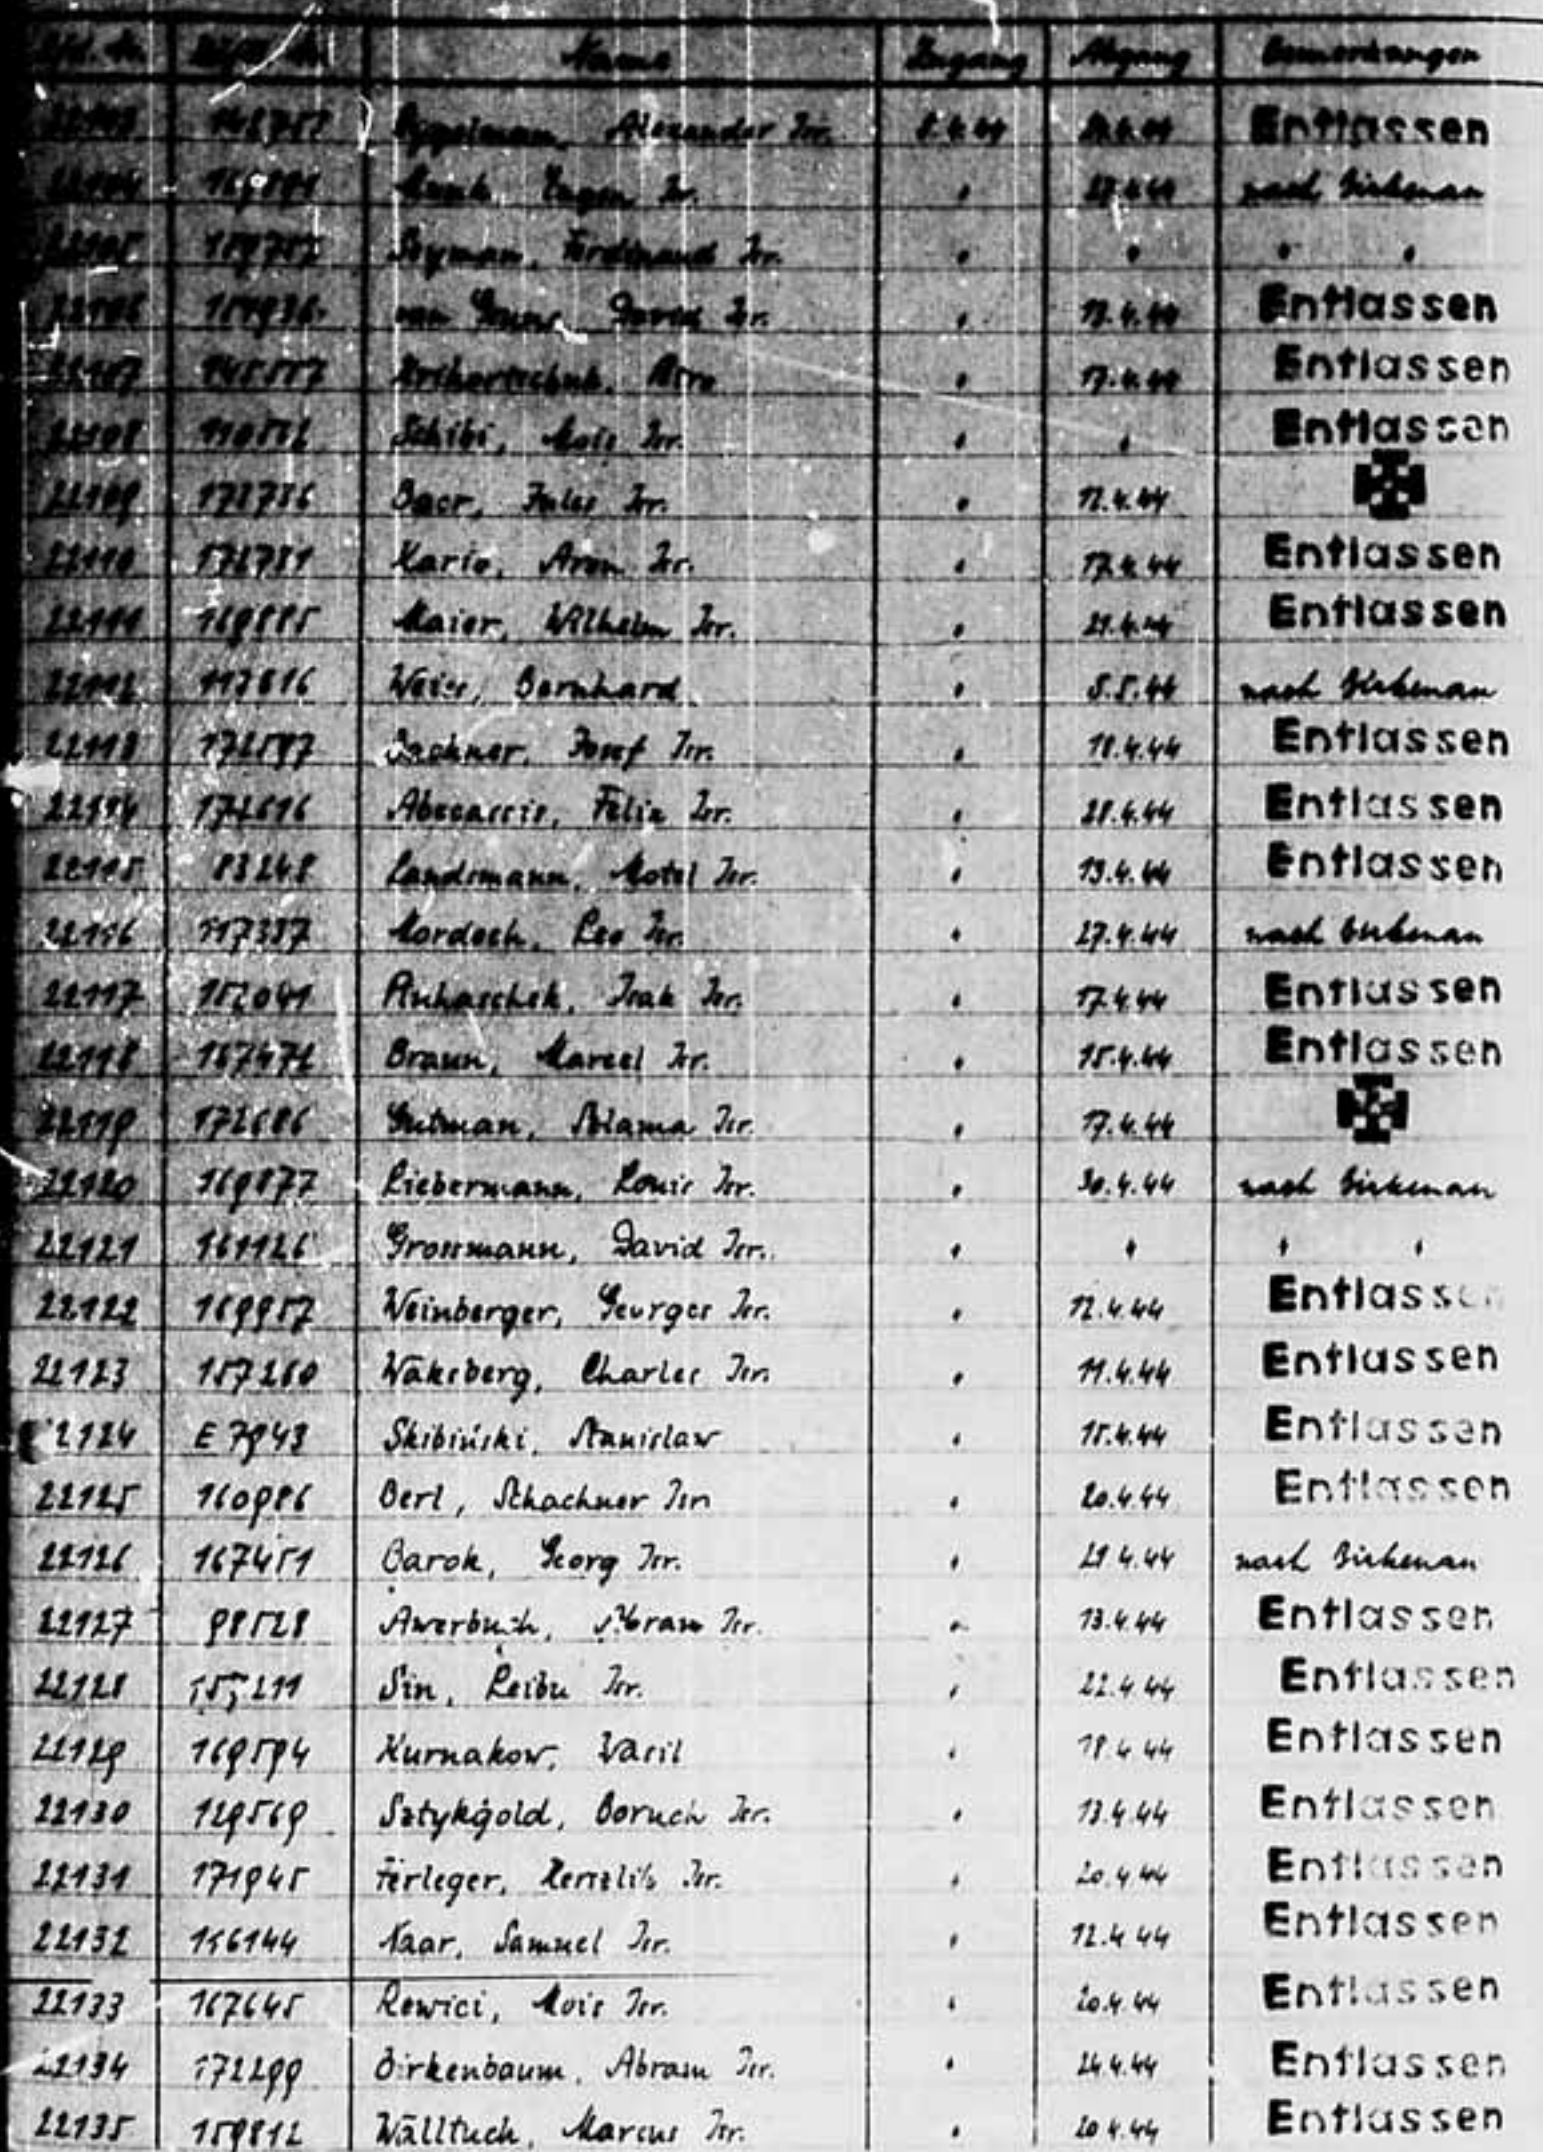 Name Zugang Abgang Bemerkungen
Alexander Isr. Entlassen
Eugen Isr. 27.4.44 nach Birkenau
22105 Ferdinand Isr. " " " "
22106 van David Isr. " 17.4.44 Entlassen
22107 " 17.4.44 Entlassen
22108 Schibi, Mois Isr. " " Entlassen
22109 172736 Baer, Jules Isr. " 12.4.44
22110 172781 Kario, Aron Isr. " 17.4.44 Entlassen
22111 169885 Maier, Wilhelm Isr. " 21.4.44 Entlassen
22112 117616 Weiss, Bernhard " 5.5.44 nach Birkenau
22113 172597 Josef Isr. " 18.4.44 Entlassen
22114 172616 Abecassis, Felix Isr. " 28.4.44 Entlassen
22115 83248 Landsmann, Motel Isr. " 13.4.44 Entlassen
22116 117337 Mordoch, Leo Isr. " 27.4.44 nach Birkenau
22117 152041 Puhaschek, Isak Isr. " 17.4.44 Entlassen
22118 167472 Braun, Marcel Isr. " 15.4.44 Entlassen
22119 172686 Gutman, Szlama Isr. " 17.4.44
22120 169877 Liebermann, Louis Isr. " 30.4.44 nach Birkenau
22121 161126 Grossmann, David Isr. " " " "
22122 169957 Weinberger, Georges Isr. " 12.4.44 Entlassen
22123 157260 Waksberg, Charles Isr. " 11.4.44 Entlassen
22124 E 7943 Skibiński, Stanislaw " 15.4.44 Entlassen
22125 160986 Berl, Schachner Isr. " 20.4.44 Entlassen
22126 167451 Barok, Georg Isr. " 29.4.44 nach Birkenau
22127 98528 Awerbuch, Abram Isr. " 13.4.44 Entlassen
22128 157211 Sin, Leibu Isr. " 22.4.44 Entlassen
22129 169594 Kurnakow, Wasil " 18.4.44 Entlassen
22130 129569 Sztykgold, Boruch Isr. " 13.4.44 Entlassen
22131 171945 Ferleger, Isr. " 20.4.44 Entlassen
22132 116144 Naar, Samuel Isr. " 12.4.44 Entlassen
22133 167645 Rewici, Mois Isr. " 20.4.44 Entlassen
22134 172299 Birkenbaum, Abram Isr. " 24.4.44 Entlassen
22135 159812 Wälltuch, Marcus Isr. " 20.4.44 Entlassen